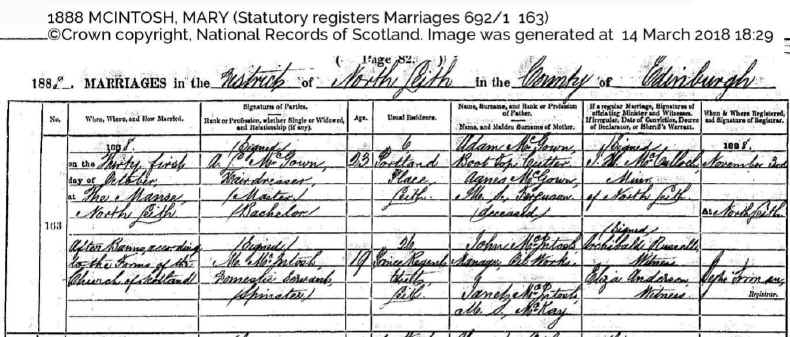 1888 MCINTOSH, MARY (Statutory registers Marriages 692/1 163)
©Crown copyright, National Records of Scotland. Image was generated at 14 March 2018 18:29
( Page 82. )
1888. MARRIAGES in the District of North Leith in the County of Edinburgh
No.
When, Where, and How Married.
Signatures of Parties.
Rank or Profession, whether Single or Widowed,
and Relationship (if any).
Age.
Usual Residence.
Name, Surname, and Rank or Profession
of Father.
Name, and Maiden Surname of Mother.
If a regular Marriage, Signatures of
officiating Minister and Witnesses.
If irregular, Date of Conviction, Decree
of Declarator, or Sheriff's Warrant.
When & Where Registered,
and Signature of Registrar.
163
1888.
on the Thirty first
day of October,
at The Manse,
North Leith
After Banns according
to the Forms of the
Church of Scotland
(Signed)
A. McGown,
Hairdresser,
(Master)
(Bachelor)
(Signed)
M. McIntosh,
Domestic Servant,
(Spinster)
23
19
6
Portland
Place,
Leith
26
Prince Regent
Leith
Adam McGown,
Boot Top Cutter
Agnes McGown,
M. S. Ferguson
(deceased)
John McIntosh
Manager, Oil Works
Janet McIntosh,
M. S. McKay
(Signed)
McCulloch,
Minr.
of North Leith
(Signed)
Archibald Russell,
Witness
Eliza Anderson,
Witness
1888.
November 3rd
At North Leith
Registrar.